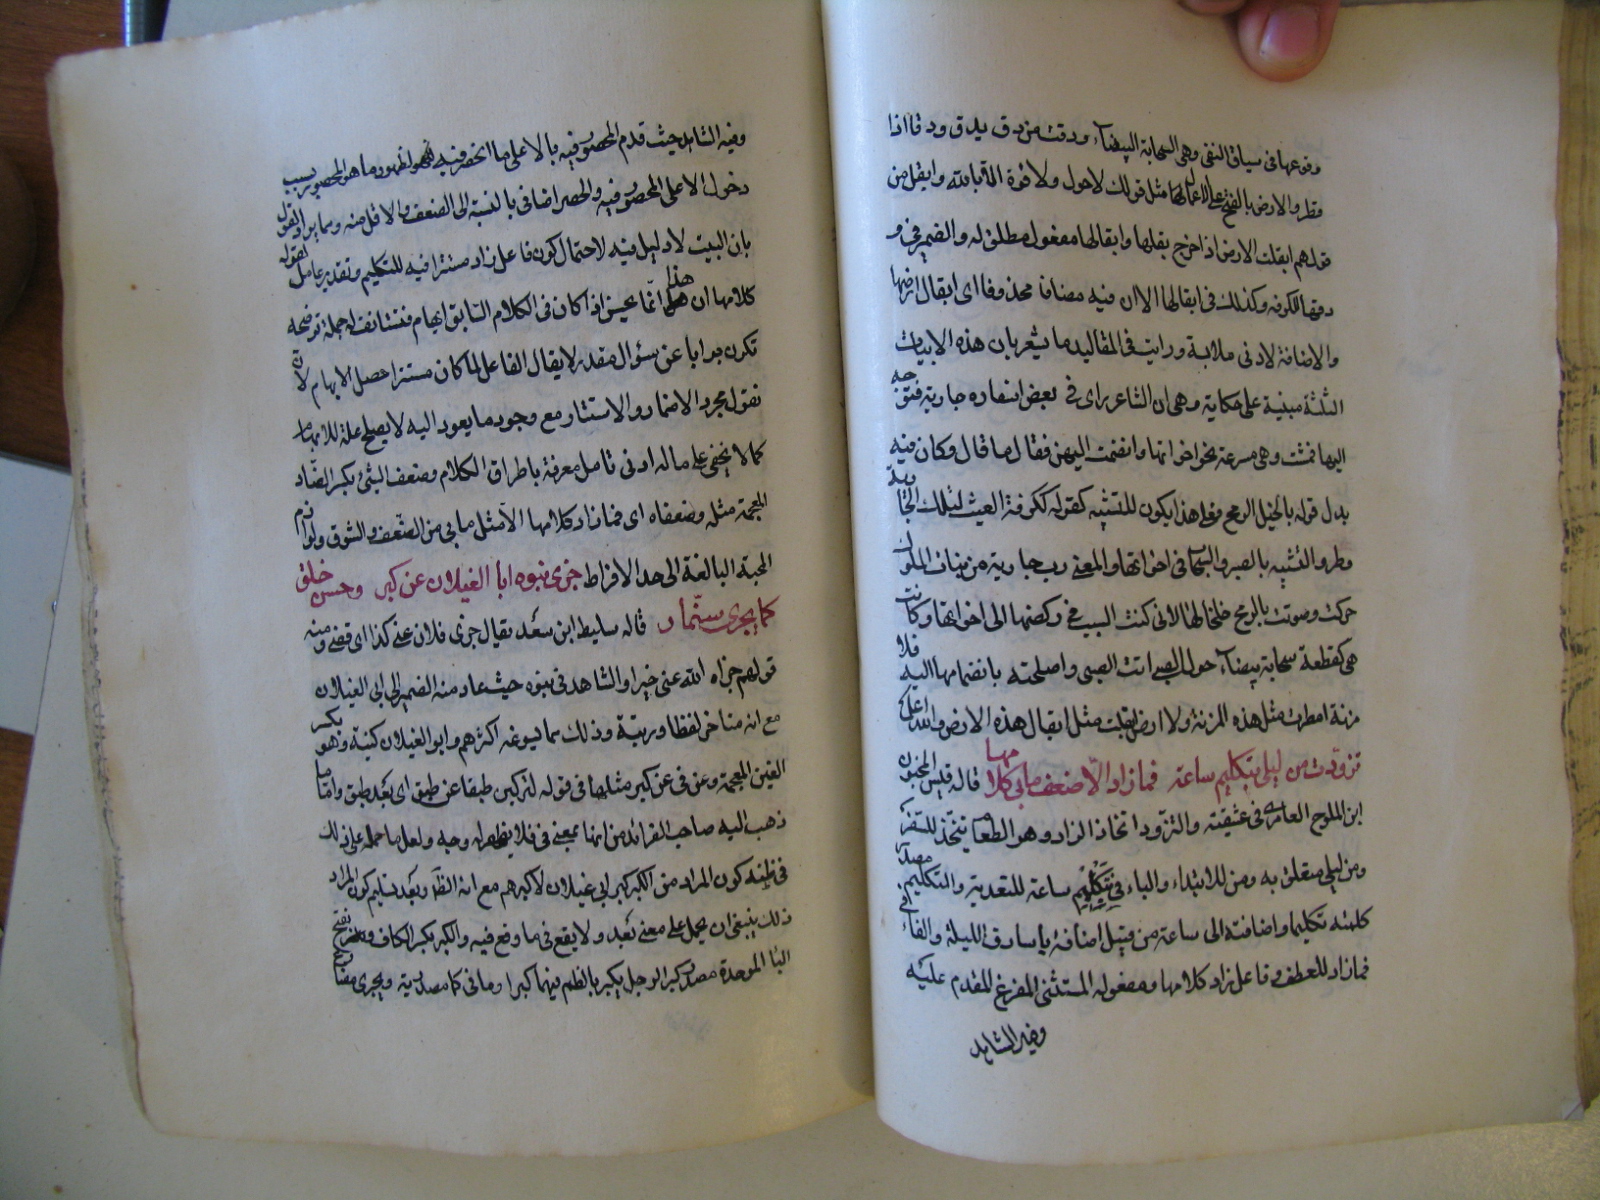 وقوعها في سياق النفي وهي السحابة البيضاء وودقت من ودق يدق ودقا اذا
قطر والارض بالفتح على الاعمالها مثل قولك لا حول ولا قوة الا بالله وابقل من
قولهم ابقلت الارض اذا خرج بقلها وابقالها مفعول مطلق له والضمير في و
ودقها للكرفه وكذلك في ابقالها الا ان فيه مضافا محذوفا اى ابقال ارضها
والاضافة لادنى ملابسة ورايت في المقاليد ما يشعر بان هذه الابيات
الثلثة مبنية على حكاية وهي ان الشاعر راى في بعض اسفاره جارية فتوجه
اليها فمشت وهي مسرعة نحو اخواتها وانضمت اليهن فقال ما قال وكان فيه
بدل قوله بالخيل الرمح وعلى هذا يكون للتشبيه كقوله ككرفة الغيث لتلك الجارية
وطر والتشبيه بالصبر والسحاب في اخواتها والمعنى رب جارية من بنات الملوك
حركت وصوت بالرمح خلخالها لانى كنت السبب في ركضها الى اخواتها وكانت
هي كقطعة سحابة بيضاء حول الصبير اتت الصبى واصلحته بانضمامها اليه فلا
مزنة امطرت مثل هذه المزنة ولا ارض ابقلت مثل ابقال هذه الارض والله اعلم
تزودت من ليلى بتكليم ساعة فما زاد الا ضعف ما بى كلامها قاله قيس المجنون
ابن الملوح العامرى في عشيقته والتزود اتخاذ الزاد وهو الطعام يتخذ للسفر
ومن ليلى متعلق به ومن للابتداء والباء في بتكليم ساعة للتعدية والتكليم مصدر
كلمته تكليما واضافته الى ساعة من قبيل اضافة يا سارق الليلة والفاء في
فما زاد للعطف وفاعل زاد كلامها ومفعوله المستثنى المفرغ المقدم عليه
وفيه الشاهد
وفيه الشاهد حيث قدم المحصور فيه بالا على ما انحصر فيه لظهور ما هو المحصور بسبب
دخول الا على المحصور فيه والحصر اضافى بالنسبة الى الضعف والاقل منه ومما يراد القول
بان البيت لا دليل فيه لاحتمال كون فاعل زاد مستترا فيه للتكليم وتقدير عامل لقوله
كلامها ان هذا انما يحسن اذا كان في الكلام السابق ابهام فتستانف له جملة توضحه
تكون جوابا عن سؤال مقدر لا يقال الفاعل لما كان مستترا حصل الابهام لانا
نقول مجرد الاضمار والاستتار مع وجود ما يعود اليه لا يصلح علة للابهام
كما لا يخفى على ما له ادنى تامل معرفة باطراق الكلام وضعف الشئ بكسر الضاد
المعجمة مثله وضعفاه اى فما زاد كلامها الا مثل ما بى من الضعف والشوق ولوازم
المحبة البالغة الى حد الافراط جزى بنوه ابا الغيلان عن كبر وحسن خلق
كما يجزى سنمار قاله سليط ابن سعد يقال جزى فلان عنى كذا اى قضى ومنه
قولهم جزاه الله عنى خيرا والشاهد في بنوه حيث عاد منه الضمير الى ابى الغيلان
مع انه متاخر لفظا ورتبة وذلك مما لا يسوغه اكثرهم وابو الغيلان كنية وهو بكسر
الغين المعجمة وعن في عن كبر مثلها في قوله لتركبن طبقا عن طبق اى بعد طبق واما ما
ذهب اليه صاحب الفرائد من انها بمعنى في فلا يظهر له وجه ولعل ما حمله على ذلك
في ظنه كون المراد من الكبر كبر ابى غيلان لا كبرهم مع انه الظاهر وبعد تسليم كون المراد
ذلك ينبغى ان يحمل على معنى بعد ولا يقع في ما وقع فيه والكبر بكسر الكاف وفتح
الباء الموحدة مصدر كبر الرجل يكبر بالضم فيهما كبرا وما في كما مصدرية ويجزى مضارع